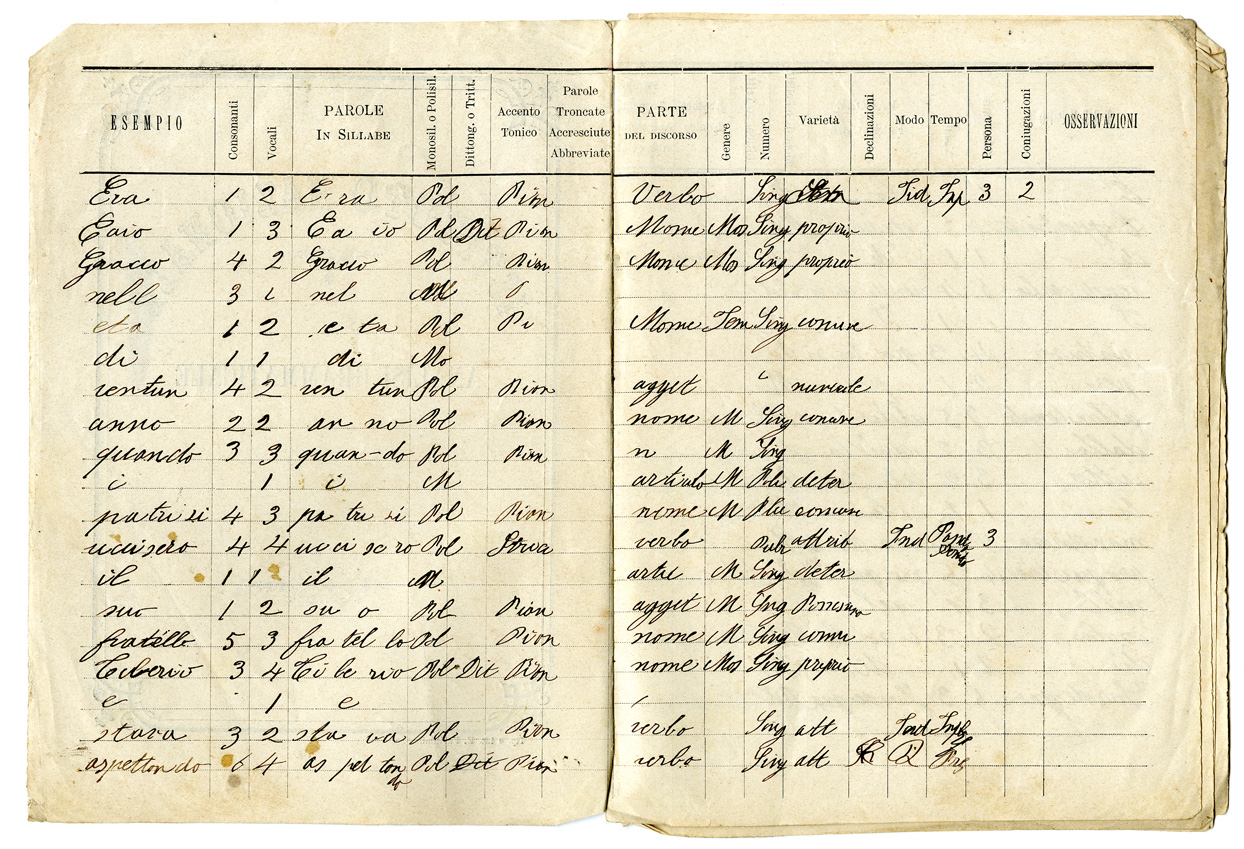 ESEMPIO Consonanti Vocali PAROLE IN SILLABE Monosil. o Polisil. Dittong. o Tritt. Accento Tonico Parole Troncate Accresciute Abbreviate PARTE DEL DISCORSO Genere Numero Varietà Declinazioni Modo Tempo Persona Coniugazioni OSSERVAZIONI
Era 1 2 E ra Pol Pian Verbo Sing Iid Imp 3 2
Caio 1 3 Ca io Pol Dit Pian Nome Mas Sing proprio
Gracco 4 2 Gracco Pol Pian Nome Mas Sing proprio
nell 3 1 nel
eta 1 2 e ta Pol Pi Nome Fem Sing comune
di 1 1 di Mo
ventun 4 2 ven tun Pol Pian agget numerale
anno 2 2 an no Pol Pian nome M Sing comune
quando 3 3 quan-do Pol Pian n M Sing
i 1 i M articolo M Plu deter
patrizi 4 3 pa tri zi Pol Pian nome M Plu comune
uccisero 4 4 ucci se ro Pol verbo attrib Ind 3
il 1 1 il M artic M Sing deter
suo 1 2 su o Pol Pian agget M Sing
fratello 5 3 fra tel lo Pol Pian nome M Sing
Tiberio 3 4 Ti be rio Pol Dit Pian nome Mas Sing proprio
e 1 e
stava 3 2 sta va Pol Pian verbo Sing att Ind
aspettando 6 4 as pet tan do Pol Dit Pian verbo Sing att